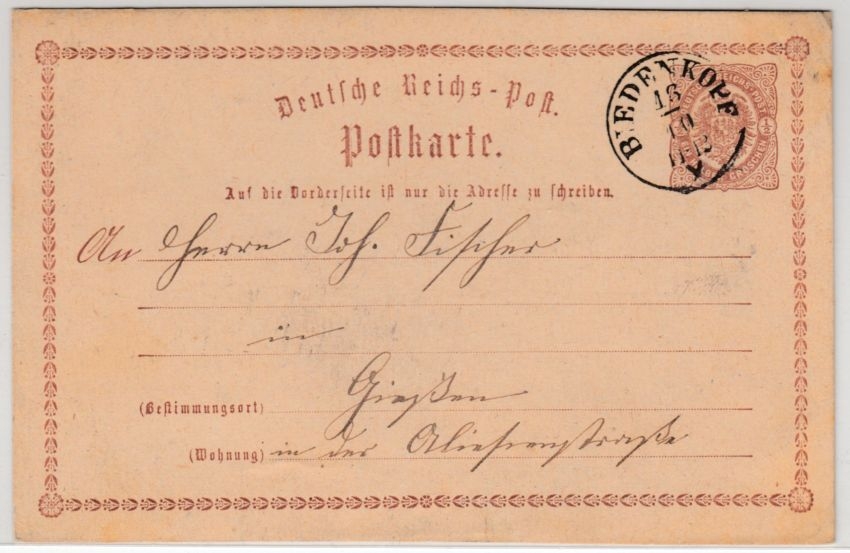 Deutsche Reichs-Post.
Postkarte.
Auf die Vorderseite ist nur die Adresse zu schreiben.
BIEDENKOPF
16
10
11-12
REICHS-POST
GROSCHEN
An Herrn Joh. Fischer
in
(Bestimmungsort) Gießen
(Wohnung) in der